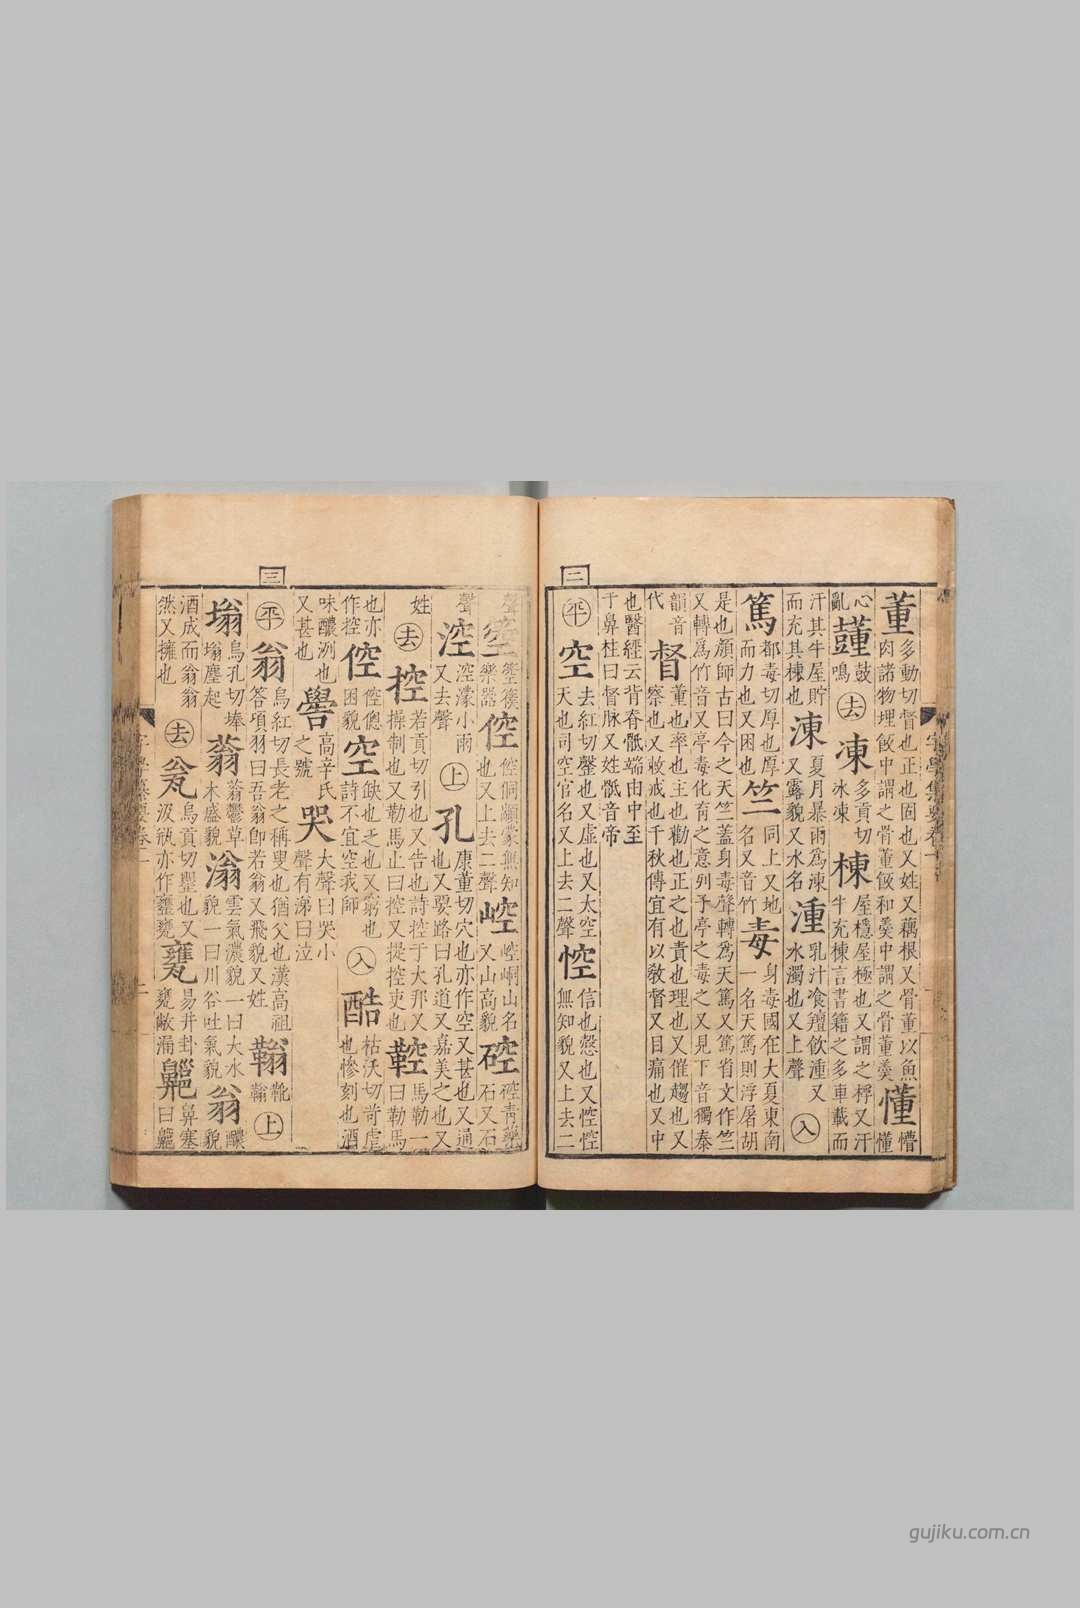 二
董
多動切督也正也固也又姓又藕根又骨董以魚
肉諸物理飯中謂之骨董飯和羹中謂之骨董羹
懂
懵
懂
心
亂
鼓
鳴
去
凍
多貢切
冰凍
棟
屋檼屋極也又謂之桴又汗
牛充棟言書籍之多車載而
汗其牛屋貯
而充其棟也
涷
夏月暴雨爲涷
又露貌又水名
湩
乳汁食羶飲湩又
水濁也又上聲
入
篤
都毒切厚也厚
而力也又困也
竺
同上又地
名又音竹
毒
身毒國在大夏東南
一名天篤則浮屠胡
是也顏師古曰今之天竺蓋身毒聲轉爲天篤又篤省文作竺
又轉爲竹音又亭毒化育之意列子亭之毒之又見下音獨秦
韻音
代
督
董也率也主也勸也正之也責也理也又催趨也又
察也又敕戒也千秋傳宜有以敎督又目痛也又中
也醫經云背脊骶端由中至
于鼻柱曰督脉又姓骶音帝
平
空
去紅切罄也又虛也又太空
天也司空官名又上去二聲
悾
信也愨也又悾悾
無知貌又上去二
三
聲
箜
箜篌
樂器
倥
倥侗顓蒙無知
也又上去二聲
崆
崆峒山名
又山高貌
硿
硿靑藥
石又石
聲
涳
涳濛小雨
又去聲
上
孔
康董切穴也亦作空又甚也又通
也又要路曰孔道又嘉美之也又
姓
去
控
若貢切引也又告也詩控于大邦又
操制也又勒馬止曰控又提控吏也
鞚
馬勒一
曰勒馬
也亦
作控
倥
倥傯
困貌
空
缺也乏也又窮也
詩不宜空我師
入
酷
枯沃切苛虐
也慘刻也酒
味醲洌也
又甚也
嚳
高辛氏
之號
哭
大聲曰哭小
聲有涕曰泣
平
翁
烏紅切長老之稱叟也猶父也漢高祖
答項羽曰吾翁卽若翁又飛貌又姓
靴
上
塕
烏孔切塳
塕塵起
蓊
蓊鬱草
木盛貌
滃
雲氣濃貌一曰大水
貌一曰川谷吐氣貌
翁
醲
貌
酒成而翁翁
然又擁也
去
瓮
烏貢切罌也又
汲缾亦作罋甕
甕
易井卦
甕敝漏
齆
鼻塞
曰齆
gujiku.com.cn